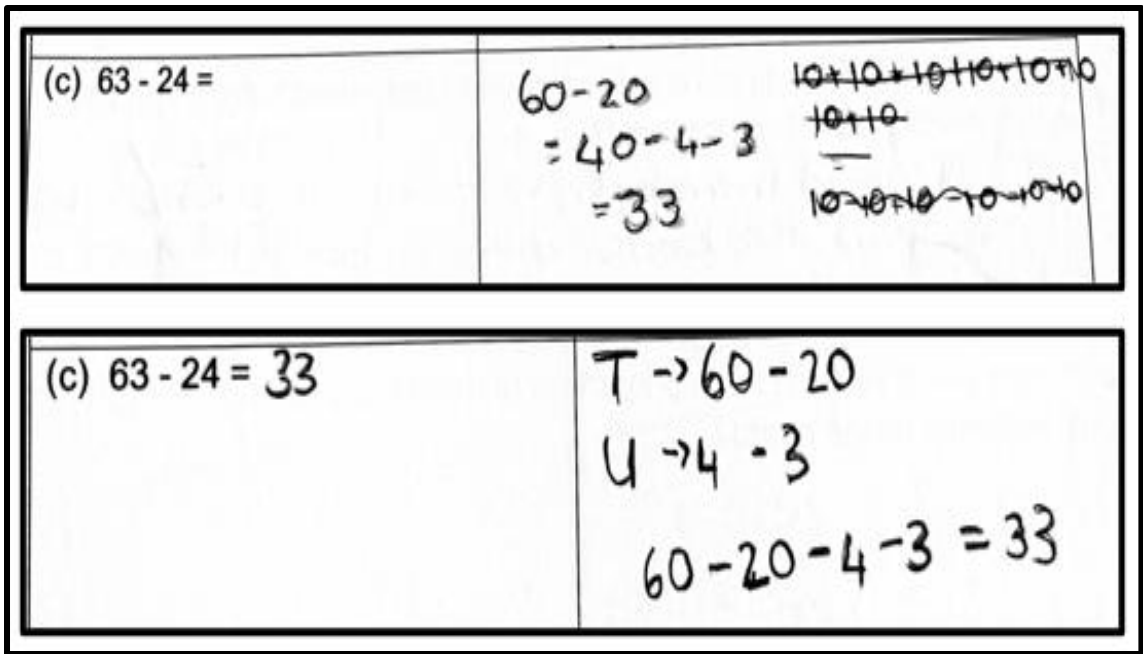 (c) 63 - 24 =
60-20
= 40-4-3
= 33
10+10+10+10+10+10
10+10
=
10-10-10-10-10-10
(c) 63 - 24 = 33
T → 60 - 20
U → 4 - 3
60 - 20 - 4 - 3 = 33